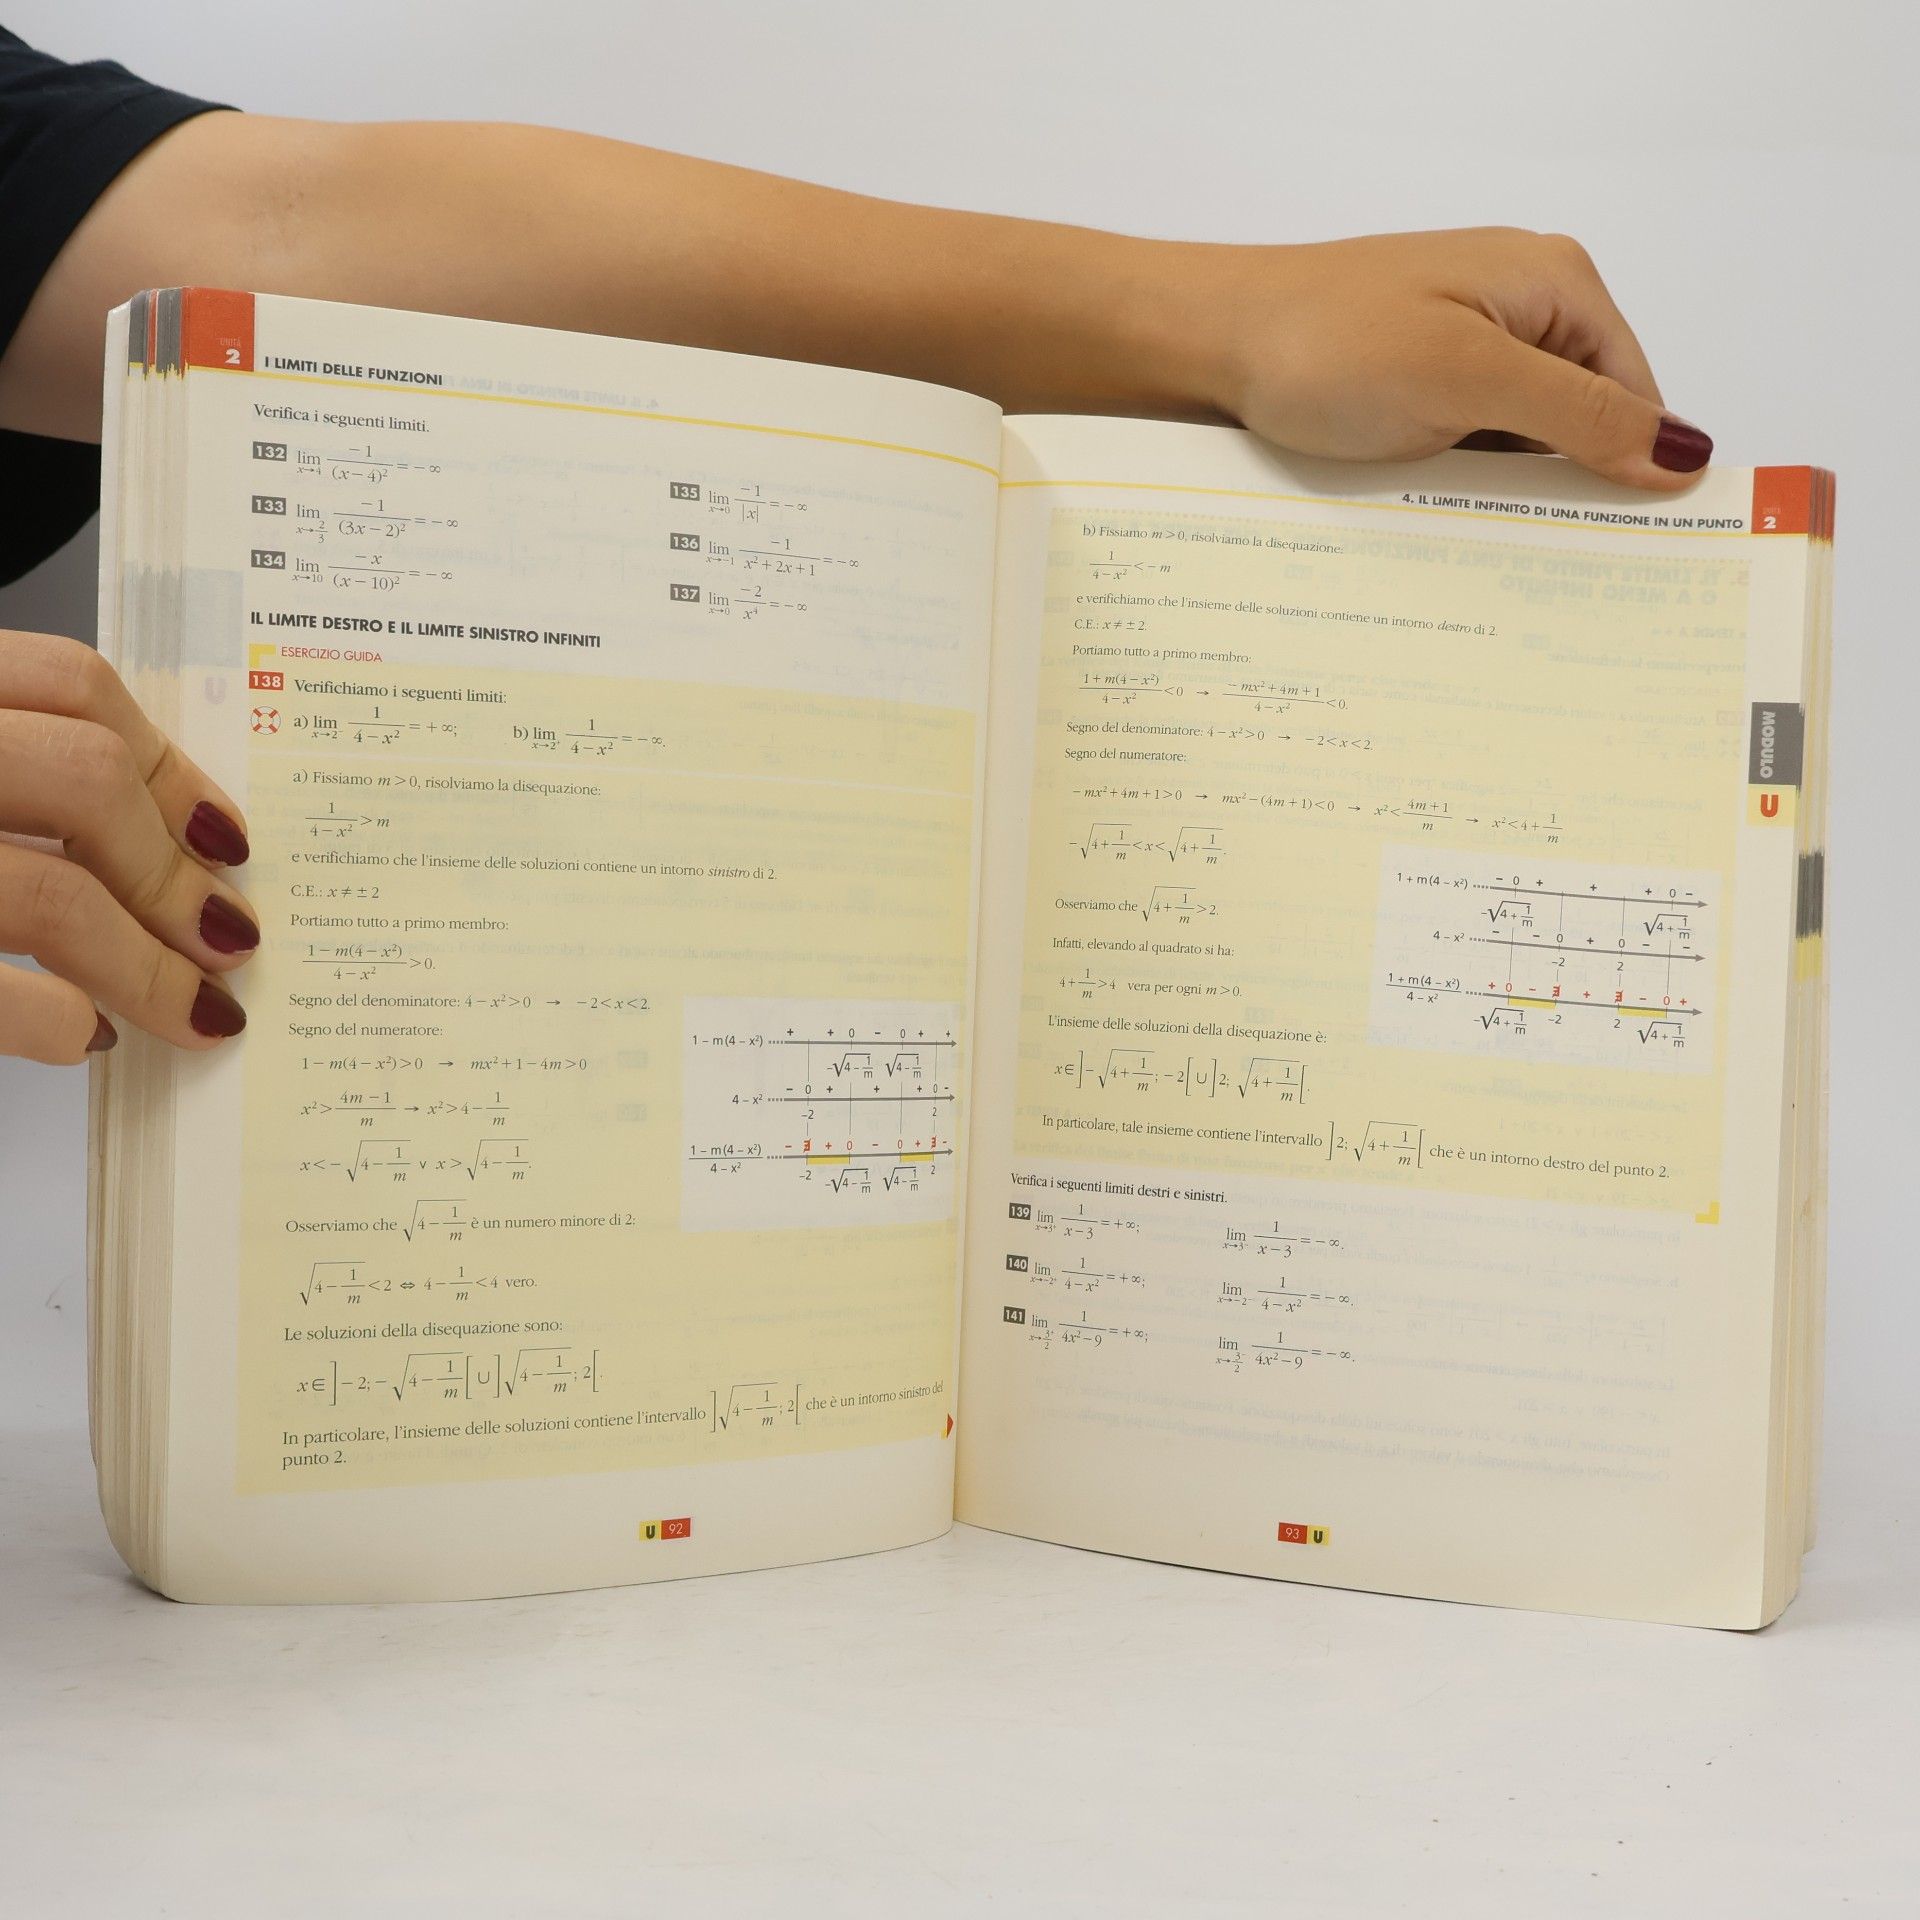 UNITÀ
2
I LIMITI DELLE FUNZIONI
Verifica i seguenti limiti.
132 lim x→4 −1/(x−4)² = −∞
133 lim x→2/3 −1/(3x−2)² = −∞
134 lim x→10 −x/(x−10)² = −∞
135 lim x→0 −1/|x| = −∞
136 lim x→−1 −1/(x²+2x+1) = −∞
137 lim x→0 −2/x⁴ = −∞
IL LIMITE DESTRO E IL LIMITE SINISTRO INFINITI
ESERCIZIO GUIDA
138 Verifichiamo i seguenti limiti:
a) lim x→2⁻ 1/(4−x²) = +∞; b) lim x→2⁺ 1/(4−x²) = −∞.
a) Fissiamo m>0, risolviamo la disequazione:
1/(4−x²) > m
e verifichiamo che l'insieme delle soluzioni contiene un intorno sinistro di 2.
C.E.: x ≠ ±2
Portiamo tutto a primo membro:
(1−m(4−x²))/(4−x²) > 0.
Segno del denominatore: 4−x²>0 → −2<x<2.
Segno del numeratore:
1−m(4−x²)>0 → mx²+1−4m>0
x² > (4m−1)/m → x² > 4−1/m
x < −√(4−1/m) ∨ x > √(4−1/m).
1 − m(4 − x²) + + 0 − 0 + +
−√(4−1/m) √(4−1/m)
4 − x² − 0 + + + 0 −
−2 2
(1 − m(4 − x²))/(4 − x²) − ∄ + 0 − 0 + ∄ −
−2 −√(4−1/m) √(4−1/m) 2
Osserviamo che √(4−1/m) è un numero minore di 2:
√(4−1/m) < 2 ⇔ 4−1/m < 4 vero.
Le soluzioni della disequazione sono:
x∈]−2; −√(4−1/m)[∪]√(4−1/m); 2[.
In particolare, l'insieme delle soluzioni contiene l'intervallo ]√(4−1/m); 2[ che è un intorno sinistro del
punto 2.
U 92
4. IL LIMITE INFINITO DI UNA FUNZIONE IN UN PUNTO
UNITÀ
2
b) Fissiamo m>0, risolviamo la disequazione:
1/(4−x²) < −m
e verifichiamo che l'insieme delle soluzioni contiene un intorno destro di 2.
C.E.: x ≠ ±2.
Portiamo tutto a primo membro:
(1+m(4−x²))/(4−x²) < 0 → (−mx²+4m+1)/(4−x²) < 0.
Segno del denominatore: 4−x²>0 → −2<x<2.
Segno del numeratore:
−mx²+4m+1>0 → mx²−(4m+1)<0 → x² < (4m+1)/m → x² < 4+1/m
−√(4+1/m) < x < √(4+1/m).
Osserviamo che √(4+1/m) > 2.
Infatti, elevando al quadrato si ha:
4+1/m > 4 vera per ogni m>0.
1 + m(4 − x²) − 0 + + + 0 −
−√(4+1/m) √(4+1/m)
4 − x² − − 0 + 0 − −
−2 2
(1 + m(4 − x²))/(4 − x²) + 0 − ∄ + ∄ − 0 +
−√(4+1/m) −2 2 √(4+1/m)
L'insieme delle soluzioni della disequazione è:
x∈]−√(4+1/m); −2[∪]2; √(4+1/m)[.
In particolare, tale insieme contiene l'intervallo ]2; √(4+1/m)[ che è un intorno destro del punto 2.
Verifica i seguenti limiti destri e sinistri.
139 lim x→3⁺ 1/(x−3) = +∞; lim x→3⁻ 1/(x−3) = −∞.
140 lim x→−2⁺ 1/(4−x²) = +∞; lim x→−2⁻ 1/(4−x²) = −∞.
141 lim x→3/2⁺ 1/(4x²−9) = +∞; lim x→3/2⁻ 1/(4x²−9) = −∞.
MODULO
U
93 U